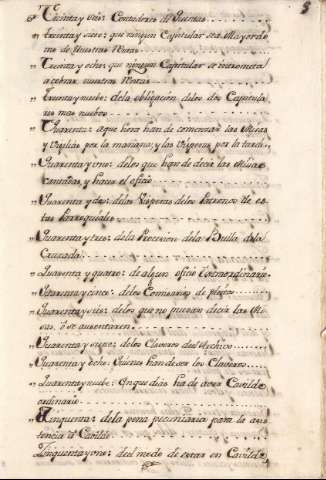 5
Treinta y seis: Contadores de Quentas
Treinta y siete: que ningun Capitular sea Mayordo
mo de Nuestras Rentas
Treinta y ocho: que ningun Capitular se entrometa
a cobrar nuestras Rentas
Treinta y nuebe: dela obligación delos dos Capitula
res mas nuebos
Quarenta: aque hora han de comenzar las Misas
y Vigilias por la mañana, y las Visperas por la tarde
Quarenta y uno: delos que han de decir las Misas
cantadas, y hacer el oficio
Quarenta y dos: delas Visperas delos Patronos de es
tas Parroquiales
Quarenta y tres: dela Procesion dela Bulla dela
Cruzada
Quarenta y quatro: de algun oficio Extraordinario
Quarenta y cinco: delos Comisarios de pleitos
Quarenta y seis: delos que no puedan decir las Mi
sas, ò se ausentaren
Quarenta y siete: delos Claveros del Archivo
Quarenta y ocho: Quienes han de ser los Claveros
Quarenta y nuebe: En que dias ha de aver Cavildo
ordinario
Cinquenta: dela pena pecuniaria para la asis
tencia à Cavildo
Cinquenta y uno: del modo de estar en Cavildo